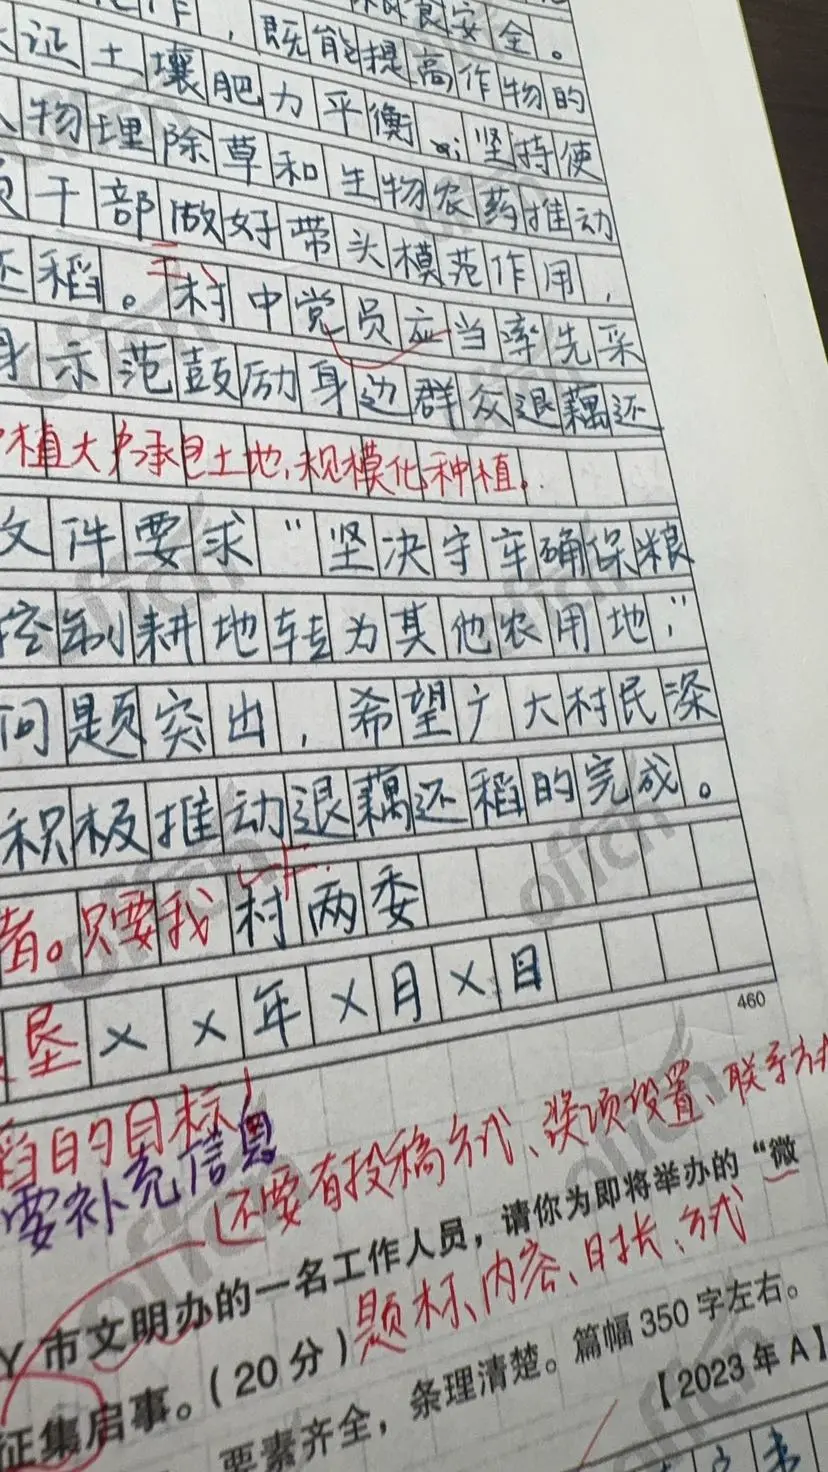 ，既能提高作物的
证土壤肥力平衡
物理除草和生物农药推动
干部做好带头模范作用，
还稻。三、村中党员应当率先采
身示范鼓励身边群众退藕还
植大户承包土地，规模化种植。
文件要求“坚决守牢确保粮
控制耕地转为其他农用地；”
问题突出，希望广大村民深
积极推动退藕还稻的完成。
者。只要我村两委
垦××年×月×日
460
稻的目标！
要补充信息
还要有投稿方式、奖项设置、联系方
市文明办的一名工作人员，请你为即将举办的“微
题材、内容、时长、方式
征集启事。（20分）
要素齐全，条理清楚。篇幅350字左右。
【2023年A】
offcn